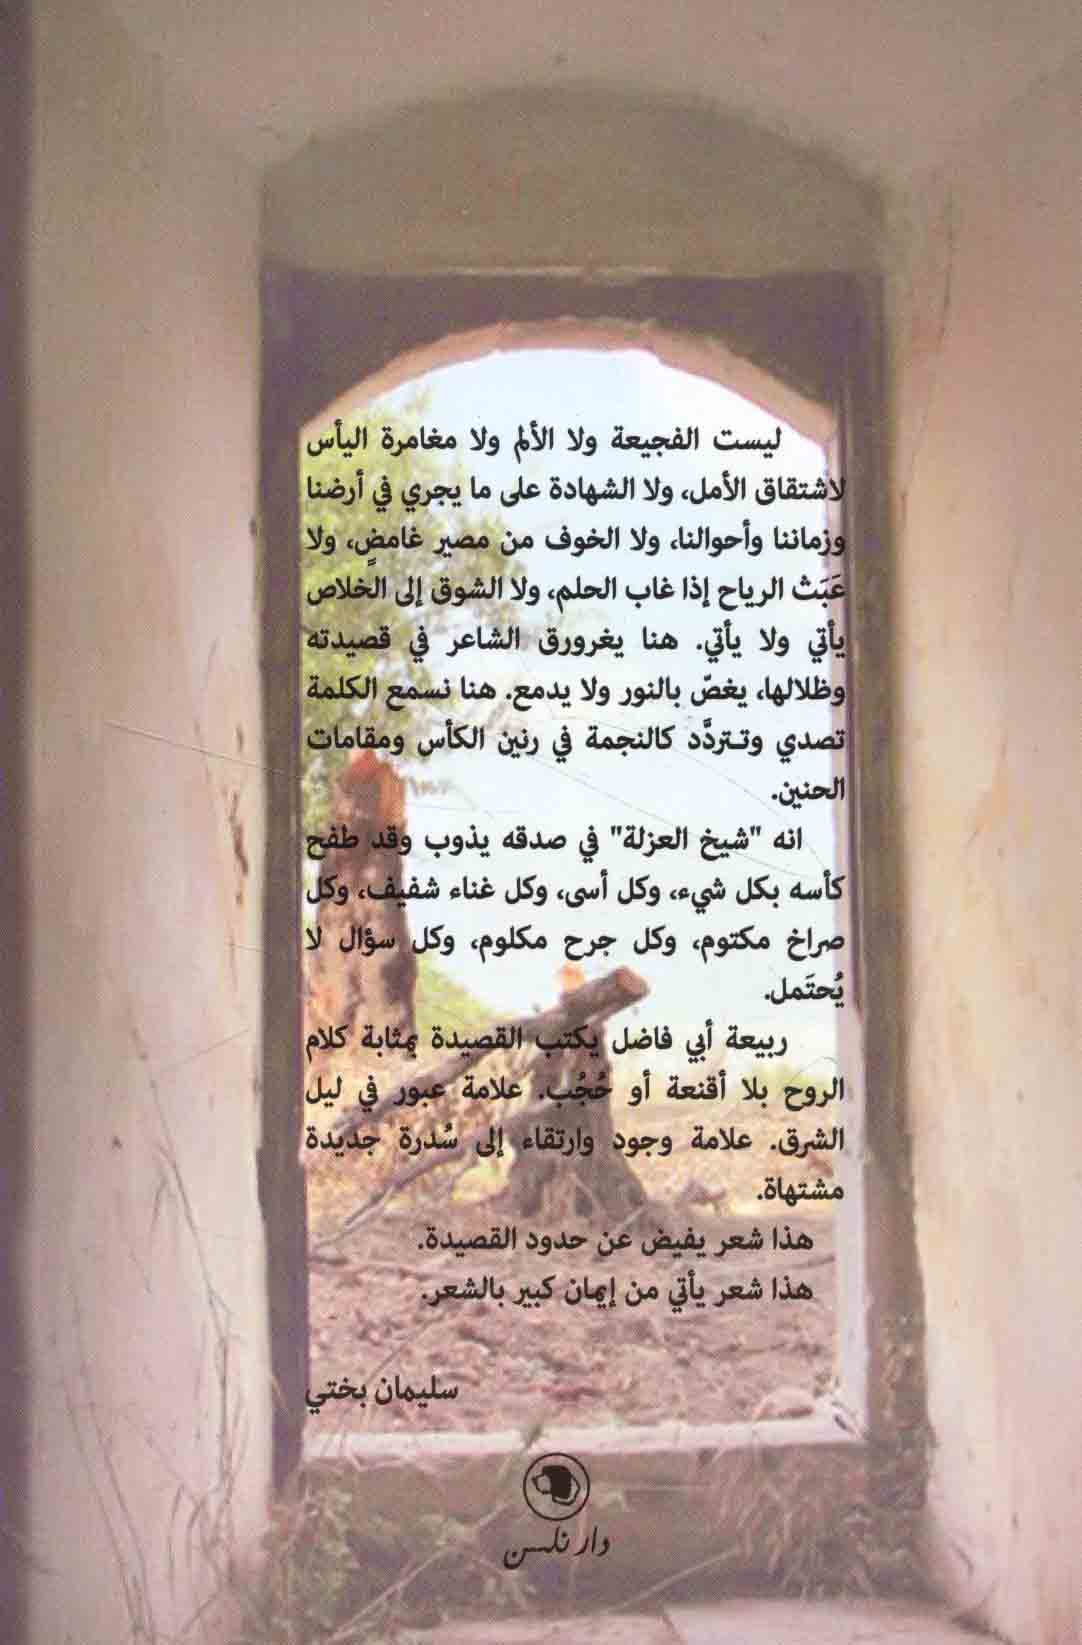 ليست الفجيعة ولا الألم ولا مغامرة اليأس
لاشتقاق الأمل، ولا الشهادة على ما يجري في أرضنا
وزماننا وأحوالنا، ولا الخوف من مصير غامضٍ، ولا
عَبَث الرياح إذا غاب الحلم، ولا الشوق إلى الخلاص
يأتي ولا يأتي. هنا يغرورق الشاعر في قصيدته
وظلالها، يغصّ بالنور ولا يدمع. هنا نسمع الكلمة
تصدي وتـتردَّد كالنجمة في رنين الكأس ومقامات
الحنين.
انه "شيخ العزلة" في صدقه يذوب وقد طفح
كأسه بكل شيء، وكل أسى، وكل غناء شفيف، وكل
صراخ مكتوم، وكل جرح مكلوم، وكل سؤال لا
يُحتَمل.
ربيعة أبي فاضل يكتب القصيدة بمثابة كلام
الروح بلا أقنعة أو حُجُب. علامة عبور في ليل
الشرق. علامة وجود وارتقاء إلى سُدرة جديدة
مشتهاة.
هذا شعر يفيض عن حدود القصيدة.
هذا شعر يأتي من إيمان كبير بالشعر.
سليمان بختي
دار نلسن